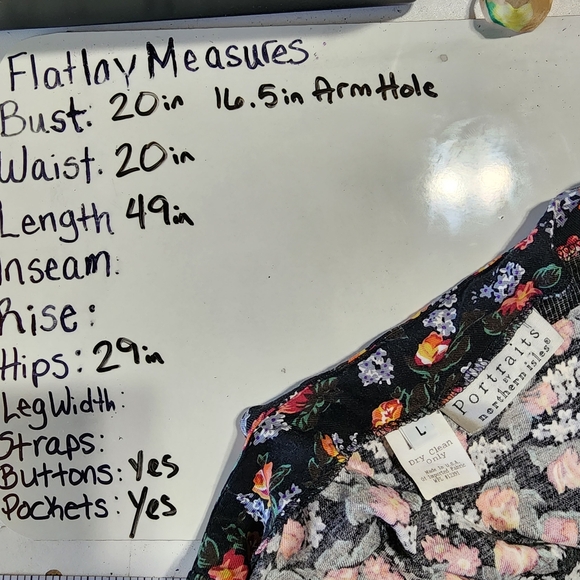 Flatlay Measures
Bust: 20in 16.5in Arm Hole
Waist: 20in
Length 49in
Inseam:
Rise:
Hips: 29in
Leg Width:
Straps:
Buttons: Yes
Pockets: Yes
Portraits
BY
northern isles®
L
Dry Clean
Only
Made in U.S.A.